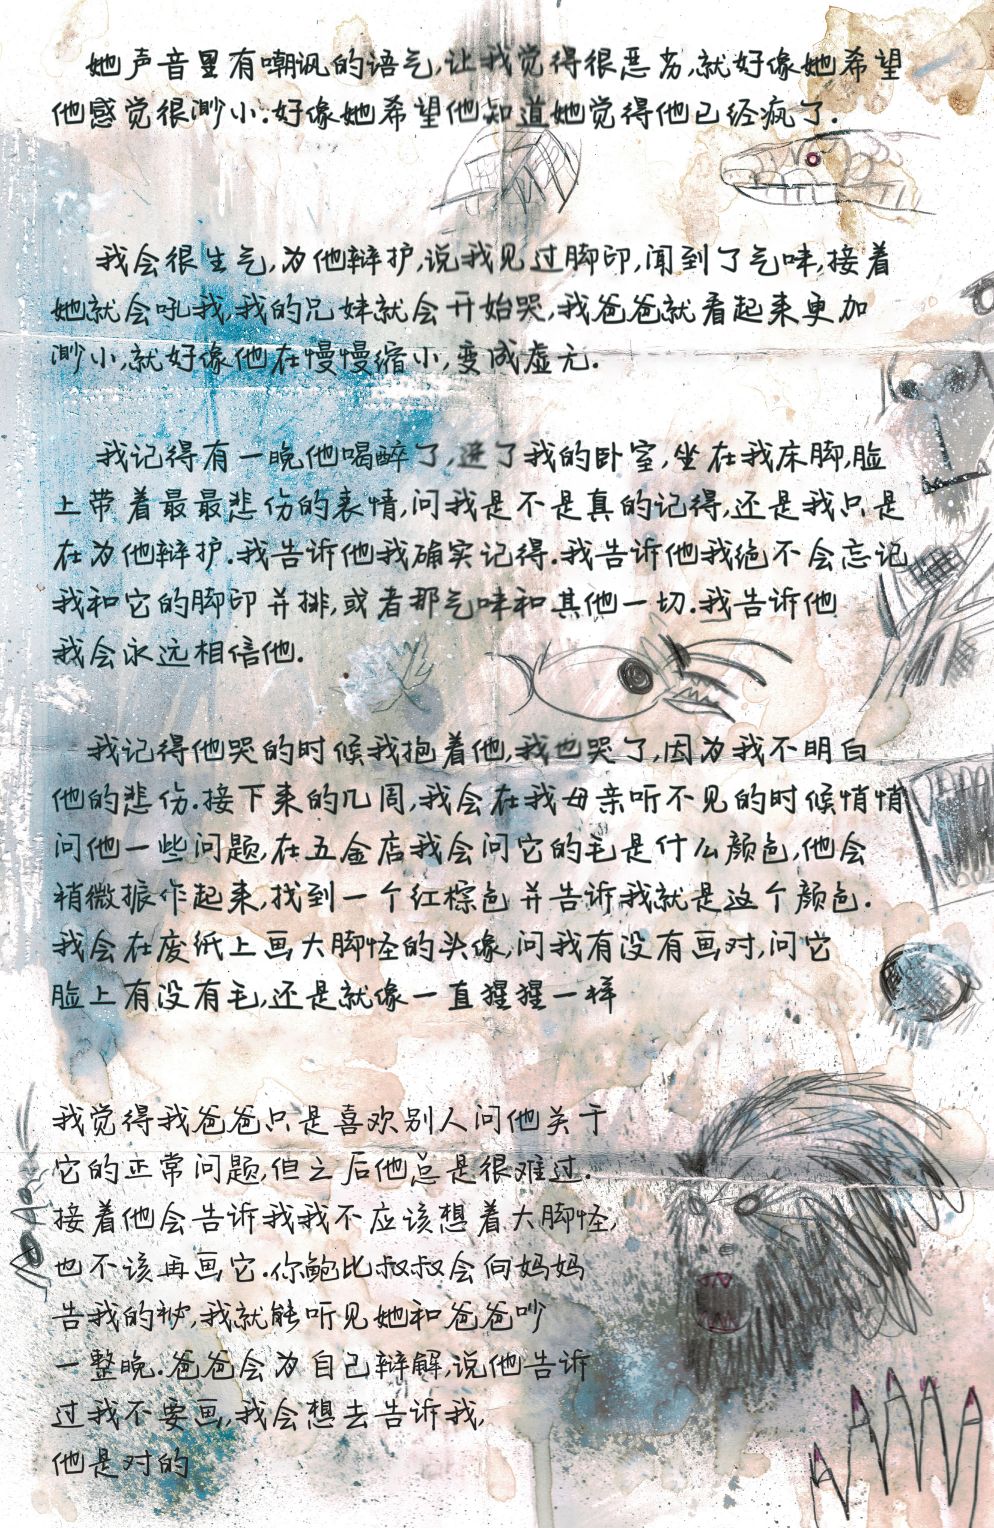 她声音里有嘲讽的语气,让我觉得很恶劣,就好像她希望
他感觉很渺小.好像她希望他知道她觉得他已经疯了.
我会很生气,为他辩护,说我见过脚印,闻到了气味,接着
她就会吼我,我的兄妹就会开始哭,我爸爸就看起来更加
渺小,就好像他在慢慢缩小,变成虚无.
我记得有一晚他喝醉了,进了我的卧室,坐在我床脚,脸
上带着最最悲伤的表情,问我是不是真的记得,还是我只是
在为他辩护.我告诉他我确实记得.我告诉他我绝不会忘记
我和它的脚印并排,或者那气味和其他一切.我告诉他
我会永远相信他.
我记得他哭的时候我抱着他,我也哭了,因为我不明白
他的悲伤.接下来的几周,我会在我母亲听不见的时候悄悄
问他一些问题,在五金店我会问它的毛是什么颜色,他会
稍微振作起来,找到一个红棕色并告诉我就是这个颜色.
我会在废纸上画大脚怪的头像,问我有没有画对,问它
脸上有没有毛,还是就像一直猩猩一样
我觉得我爸爸只是喜欢别人问他关于
它的正常问题,但之后他总是很难过.
接着他会告诉我我不应该想着大脚怪,
也不该再画它.你鲍比叔叔会向妈妈
告我的秘,我就能听见她和爸爸吵
一整晚.爸爸会为自己辩解,说他告诉
过我不要画,我会想去告诉我,
他是对的